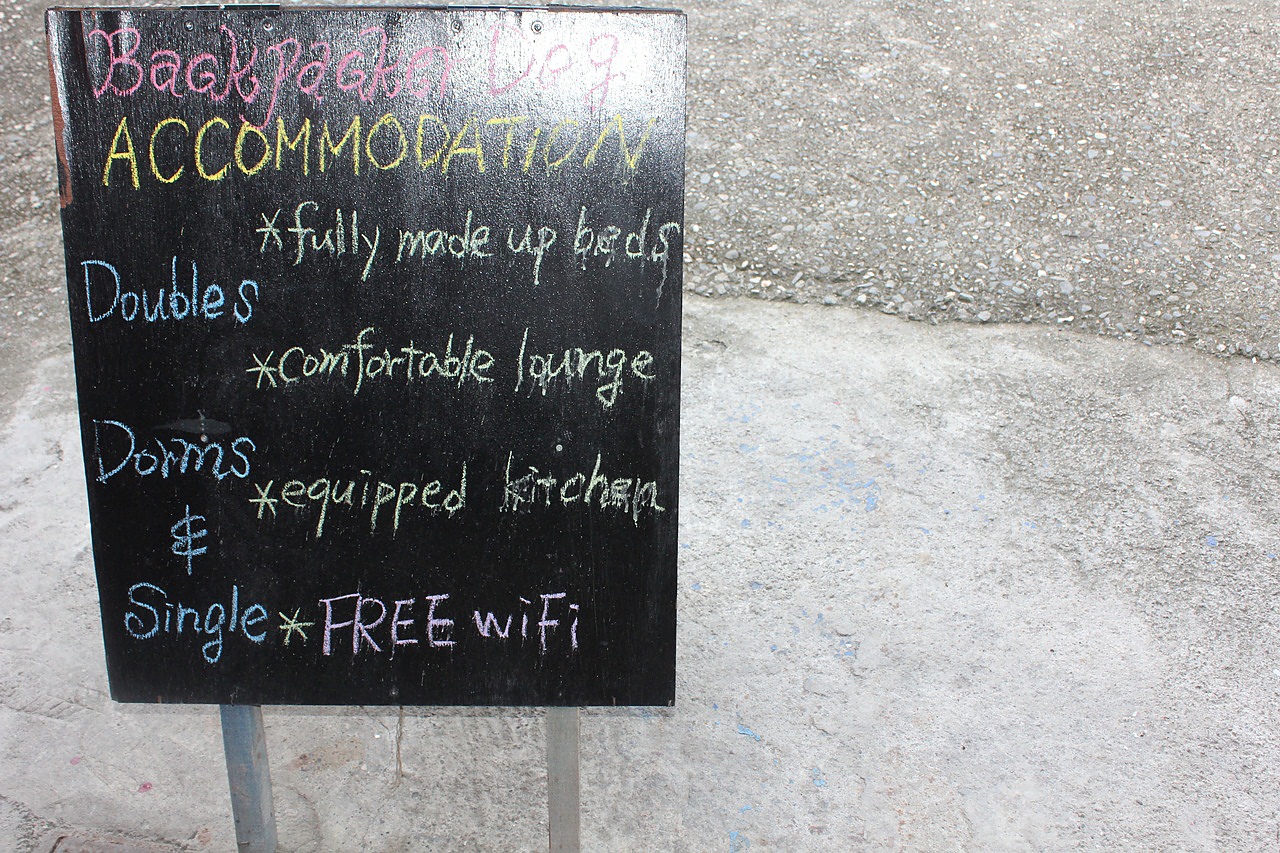 Backpacker Dog
ACCOMMODATION
*fully made up beds
Doubles
*comfortable lounge
Dorms
*equipped kitchen
&
Single *FREE wiFi